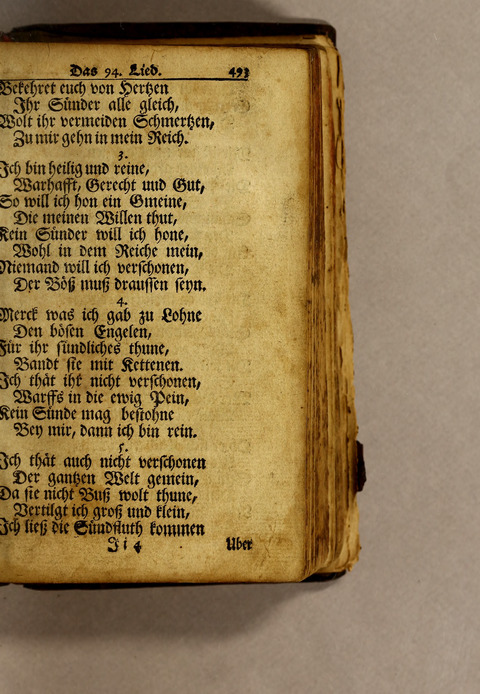 Das 94. Lied. 493
Bekehret euch von Hertzen
Ihr Sünder alle gleich,
Wolt ihr vermeiden Schmertzen,
Zu mir gehn in mein Reich.
3.
Ich bin heilig und reine,
Warhafft, Gerecht und Gut,
So will ich hon ein Gmeine,
Die meinen Willen thut,
Kein Sünder will ich hone,
Wohl in dem Reiche mein,
Niemand will ich verschonen,
Der Böß muß draussen seyn.
4.
Merck was ich gab zu Lohne
Den bösen Engelen,
Für ihr sündliches thune,
Bandt sie mit Kettenen.
Ich thät iht nicht verschonen,
Warffs in die ewig Pein,
Kein Sünde mag bestohne
Bey mir, dann ich bin rein.
5.
Ich thät auch nicht verschonen
Der gantzen Welt gemein,
Da sie nicht Buß wolt thune,
Vertilgt ich groß und klein,
Ich ließ die Sündfluth kommen
J i 4 Uber